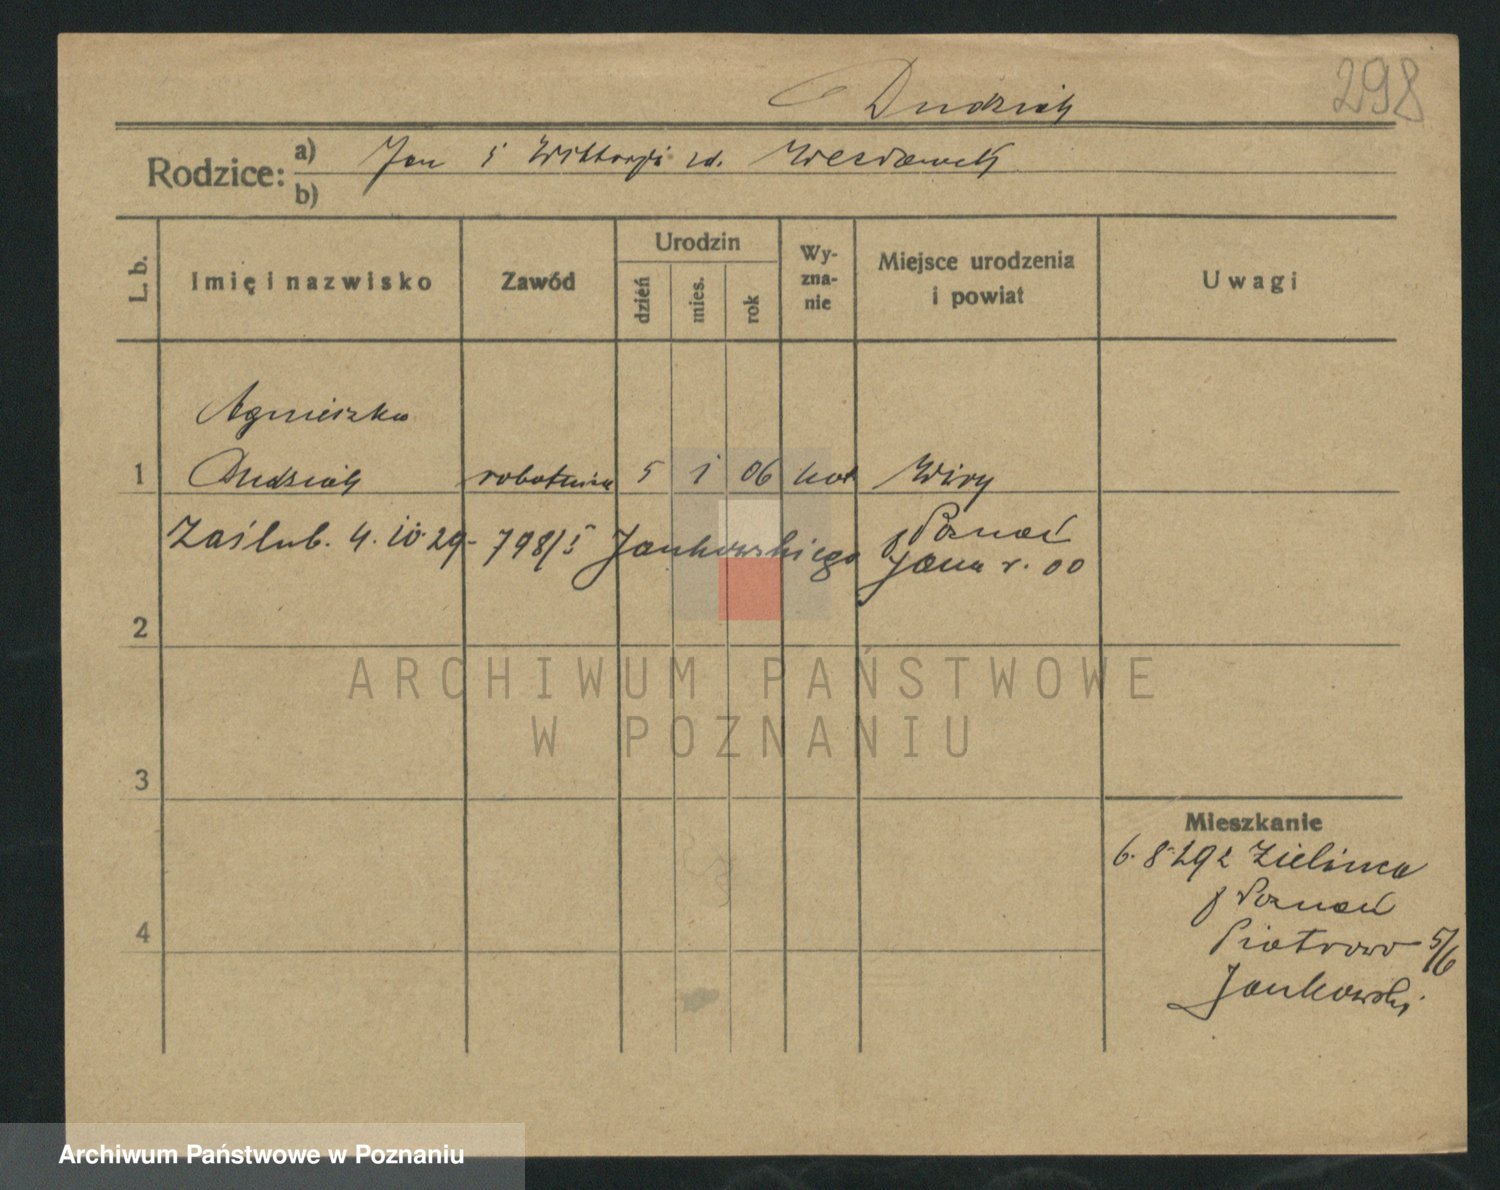 298
Dudziak
Rodzice: a) Jan i Wiktorja zd.
b)
L. b.
Imię i nazwisko
Zawód
Urodzin
dzień
mies.
rok
Wy-
zna-
nie
Miejsce urodzenia
i powiat
Uwagi
Agnieszka
1 Dudziak robotnica 5 1 06 kat Wiry
p Poznań
Zaślub. 4. 10. 29. 798/ Jankowskiego Jana r. 00
2
3
4
Mieszkanie
6. 8. 29 z Zielińca
p Poznań
Piotrowo 5/6
Jankowski
ARCHIWUM PAŃSTWOWE
W POZNANIU
Archiwum Państwowe w Poznaniu